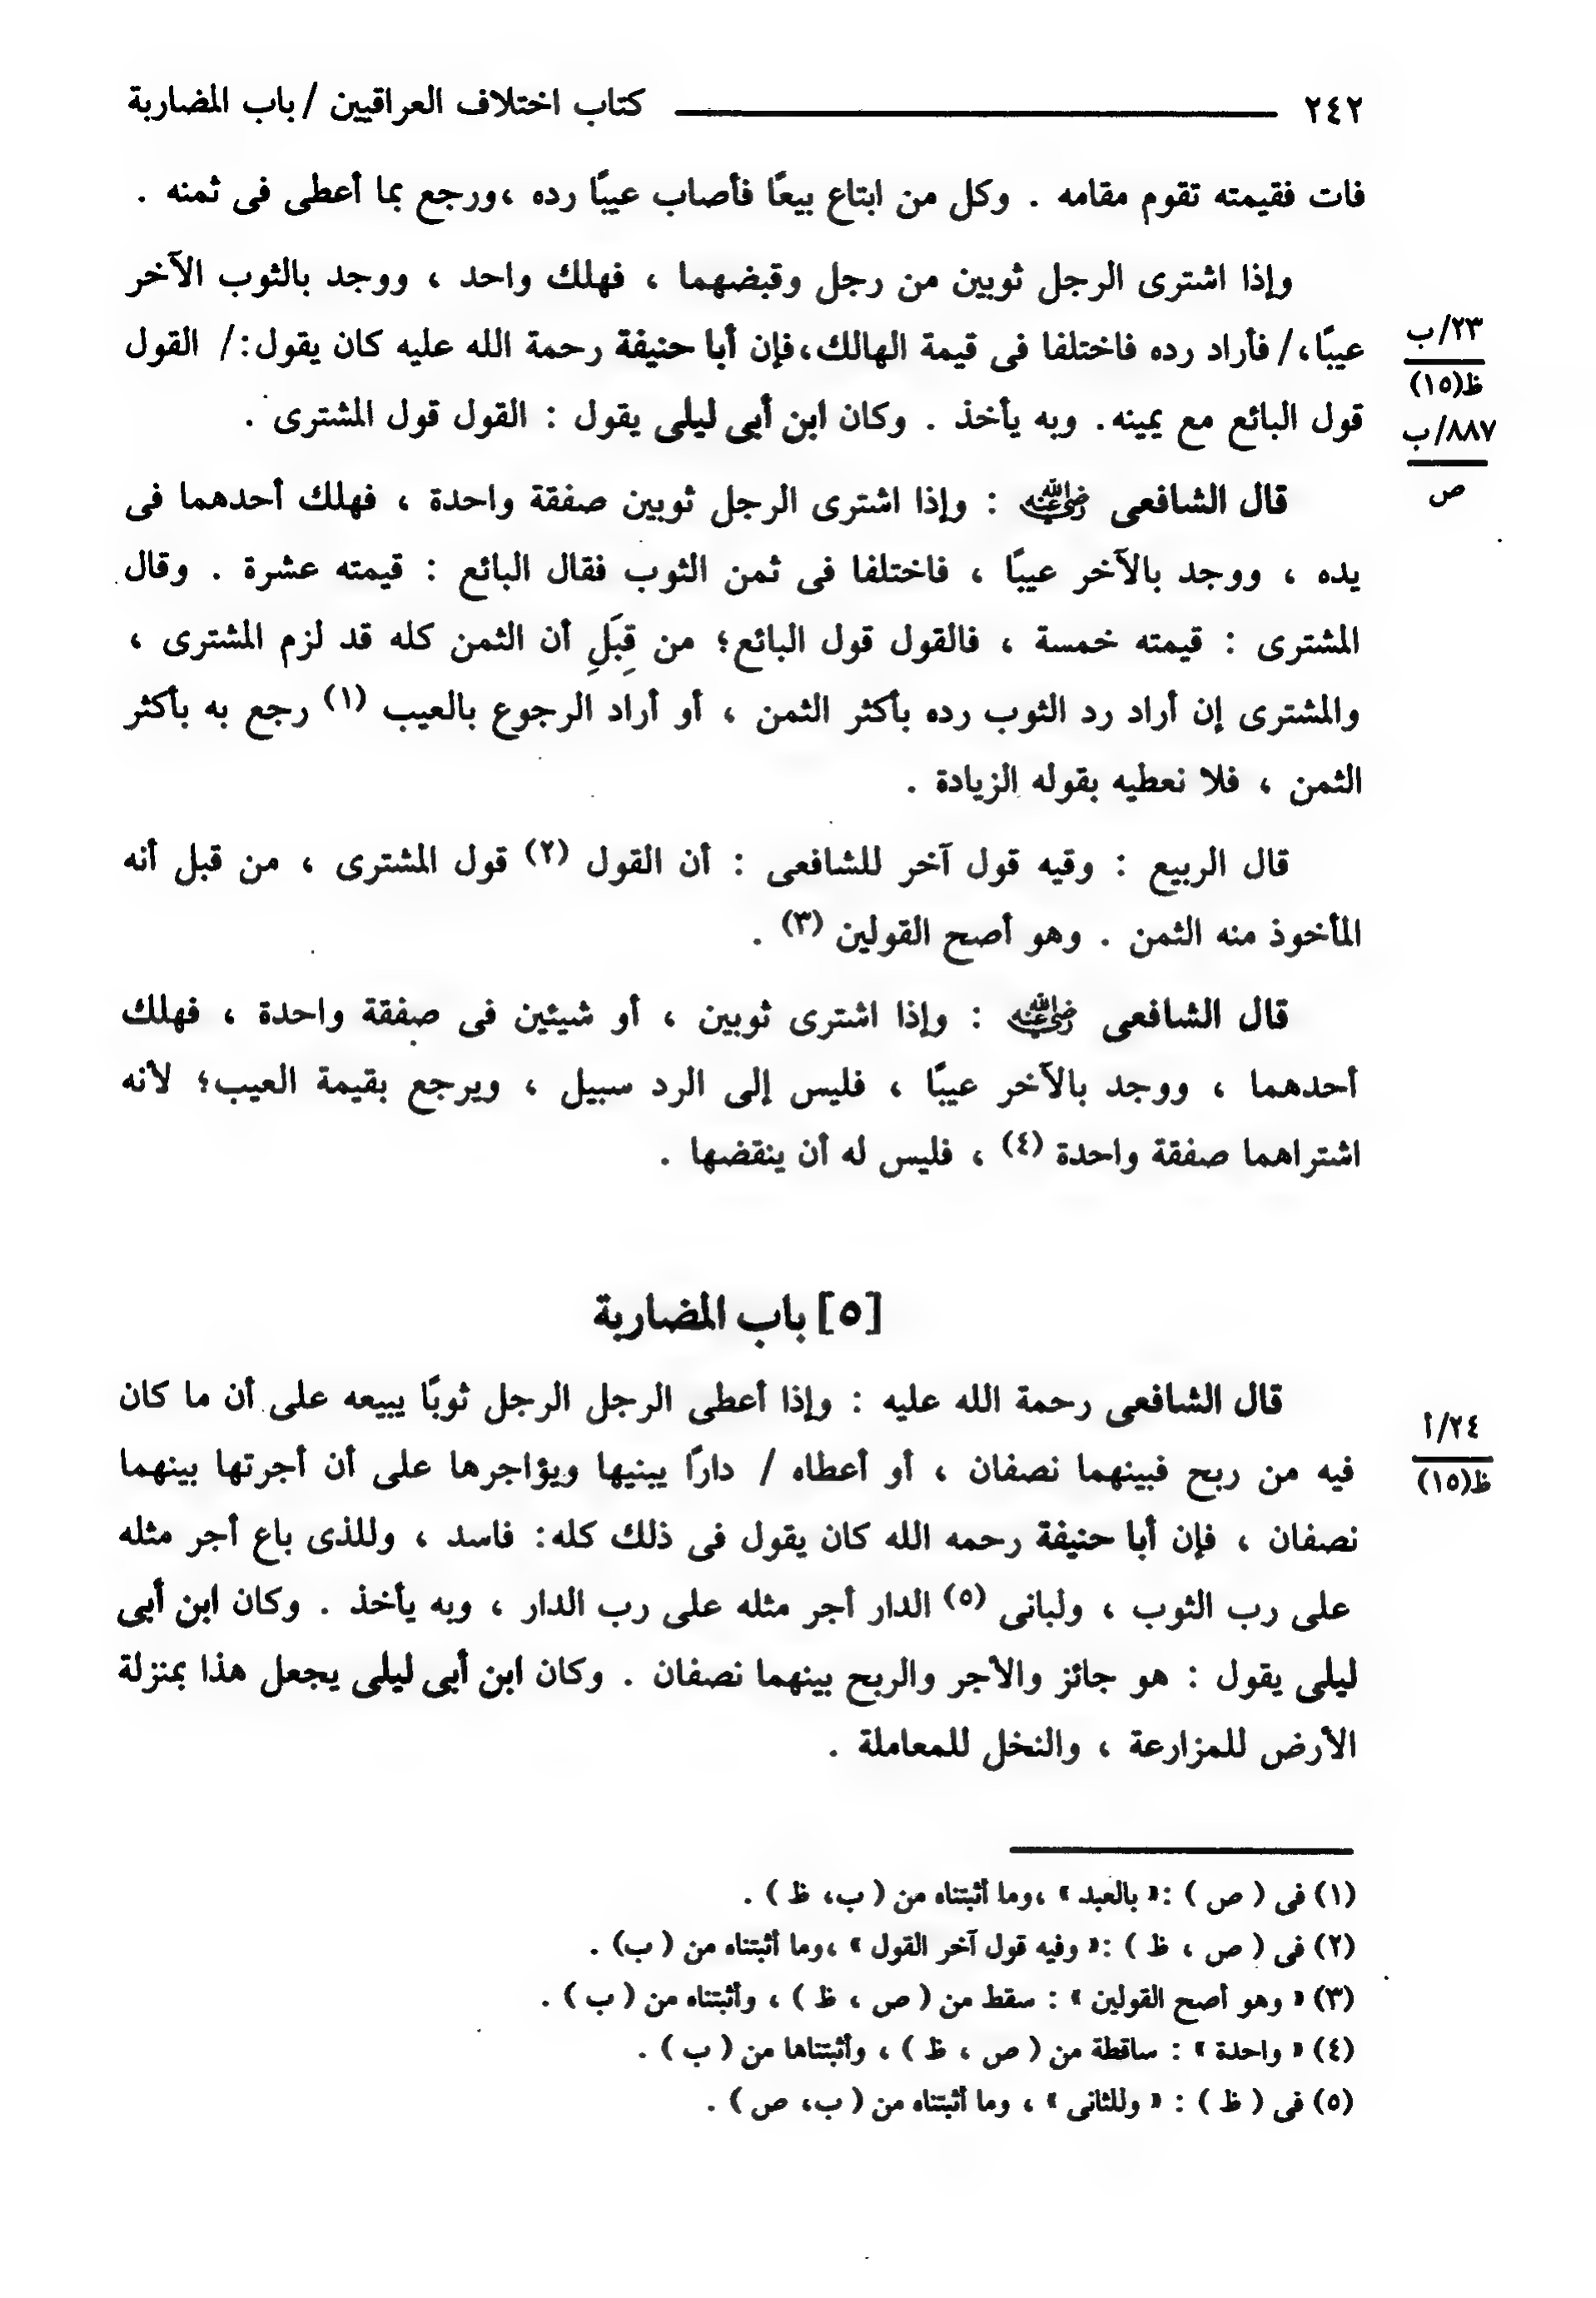 ٢٤٢ كتاب اختلاف العراقيين / باب المضاربة
فات فقيمته تقوم مقامه . وكل من ابتاع بيعًا فأصاب عيبًا رده ،ورجع بما أعطى فى ثمنه .
وإذا اشترى الرجل ثوبين من رجل وقبضهما ، فهلك واحد ، ووجد بالثوب الآخر
عيبًا،/ فأراد رده فاختلفا فى قيمة الهالك،فإن أبا حنيفة رحمة الله عليه كان يقول:/ القول
٢٣/ب
ظ(١٥)
قول البائع مع يمينه. وبه يأخذ . وكان ابن أبى ليلى يقول : القول قول المشترى .
٨٨٧/ب
ص
قال الشافعى رضي الله عنه : وإذا اشترى الرجل ثوبين صفقة واحدة ، فهلك أحدهما فى
يده ، ووجد بالآخر عيبًا ، فاختلفا فى ثمن الثوب فقال البائع : قيمته عشرة . وقال
المشترى : قيمته خمسة ، فالقول قول البائع؛ من قِبَلِ أن الثمن كله قد لزم المشترى ،
والمشترى إن أراد رد الثوب رده بأكثر الثمن ، أو أراد الرجوع بالعيب (١) رجع به بأكثر
الثمن ، فلا نعطيه بقوله الزيادة .
قال الربيع : وفيه قول آخر للشافعى : أن القول (٢) قول المشترى ، من قبل أنه
المأخوذ منه الثمن . وهو أصح القولين (٣) .
قال الشافعى رضي الله عنه : وإذا اشترى ثوبين ، أو شيئين فى صفقة واحدة ، فهلك
أحدهما ، ووجد بالآخر عيبًا ، فليس إلى الرد سبيل ، ويرجع بقيمة العيب؛ لأنه
اشتراهما صفقة واحدة (٤) ، فليس له أن ينقضها .
[٥] باب المضاربة
قال الشافعى رحمة الله عليه : وإذا أعطى الرجل الرجل ثوبًا يبيعه على أن ما كان
فيه من ربح فبينهما نصفان ، أو أعطاه / دارًا يبنيها ويؤاجرها على أن أجرتها بينهما
٢٤/أ
ظ(١٥)
نصفان ، فإن أبا حنيفة رحمه الله كان يقول فى ذلك كله: فاسد ، وللذى باع أجر مثله
على رب الثوب ، ولبانى (٥) الدار أجر مثله على رب الدار ، وبه يأخذ . وكان ابن أبى
ليلى يقول : هو جائز والأجر والربح بينهما نصفان . وكان ابن أبى ليلى يجعل هذا بمنزلة
الأرض للمزارعة ، والنخل للمعاملة .
(١) فى ( ص ) :« بالعبد » ،وما أثبتناه من ( ب، ظ ) .
(٢) فى ( ص ، ظ ) :« وفيه قول آخر القول » ،وما أثبتناه من ( ب) .
(٣) « وهو أصح القولين » : سقط من ( ص ، ظ ) ، وأثبتناه من ( ب ) .
(٤) « واحدة » : ساقطة من ( ص ، ظ ) ، وأثبتناها من ( ب ) .
(٥) فى ( ظ ) : « وللثانى » ، وما أثبتناه من ( ب، ص ) .